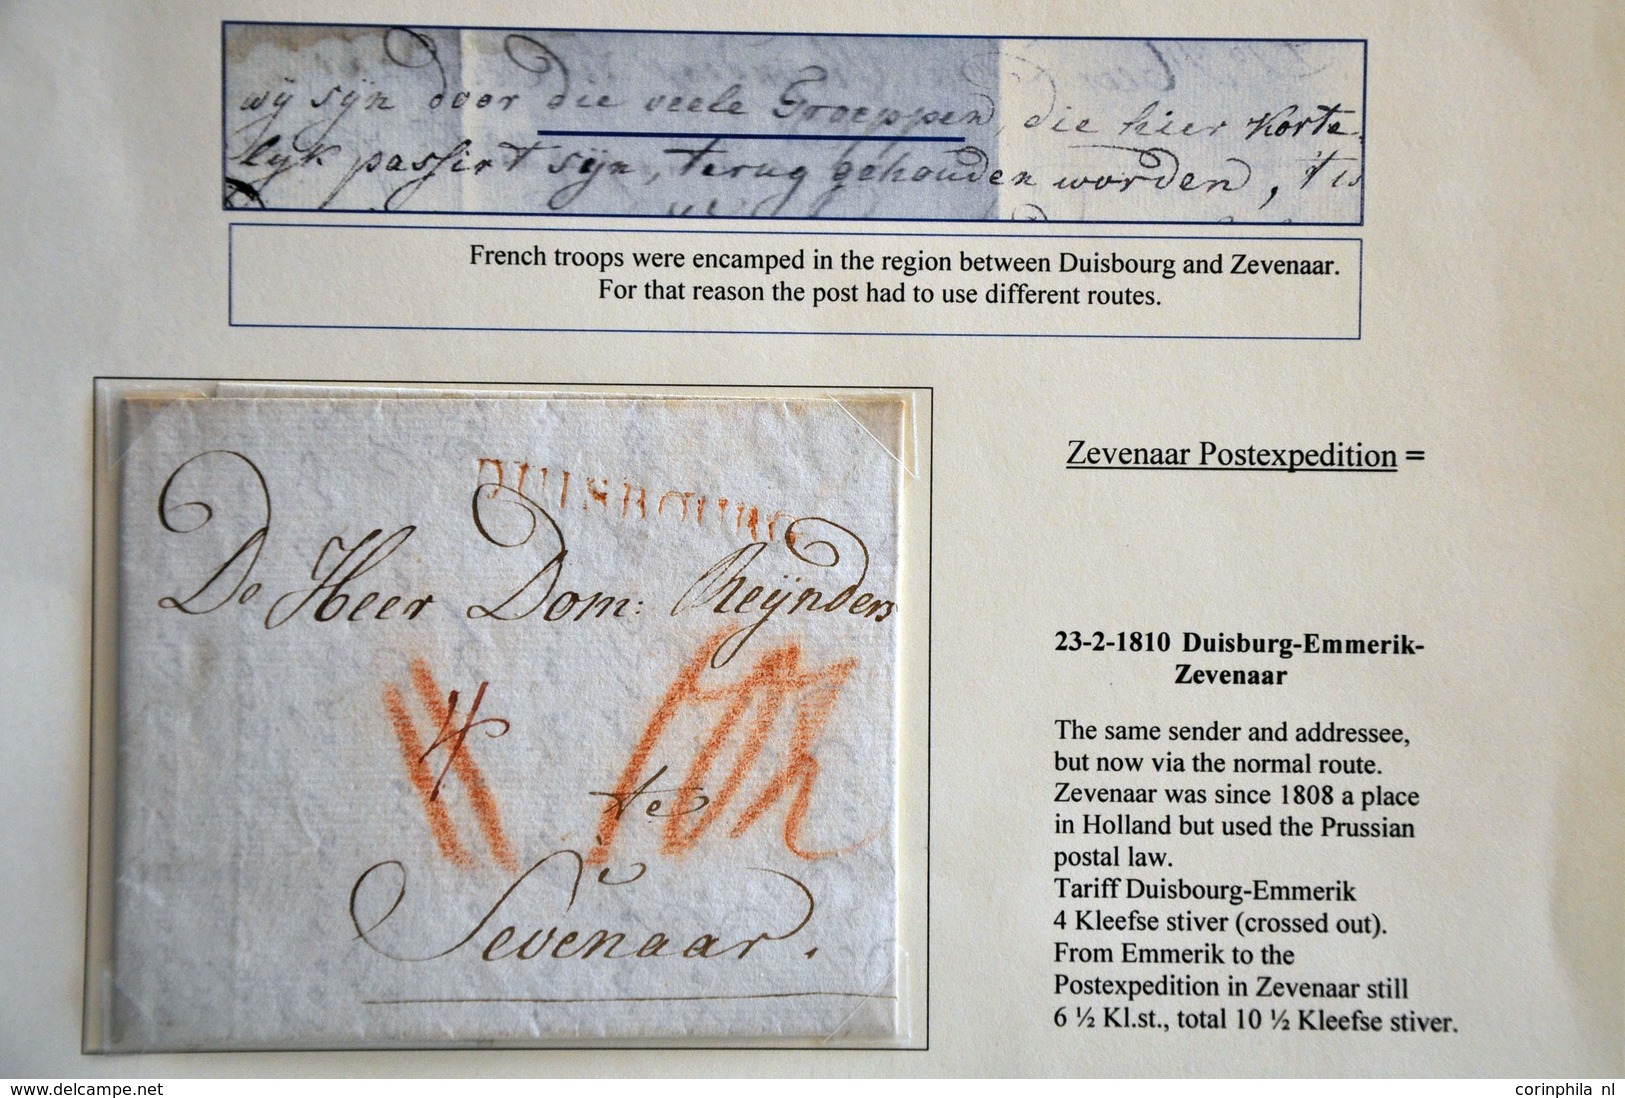 wij sijn door die veele Troeppen, die hier Korte
lijk passirt sijn, terug gehouden worden, 't is
French troops were encamped in the region between Duisbourg and Zevenaar.
For that reason the post had to use different routes.
De Heer Dom: Reijnders
4
te
Sevenaar.
Zevenaar Postexpedition =
23-2-1810 Duisburg-Emmerik-
Zevenaar
The same sender and addressee,
but now via the normal route.
Zevenaar was since 1808 a place
in Holland but used the Prussian
postal law.
Tariff Duisbourg-Emmerik
4 Kleefse stiver (crossed out).
From Emmerik to the
Postexpedition in Zevenaar still
6 ½ Kl.st., total 10 ½ Kleefse stiver.
www.delcampe.net
corinphila nl